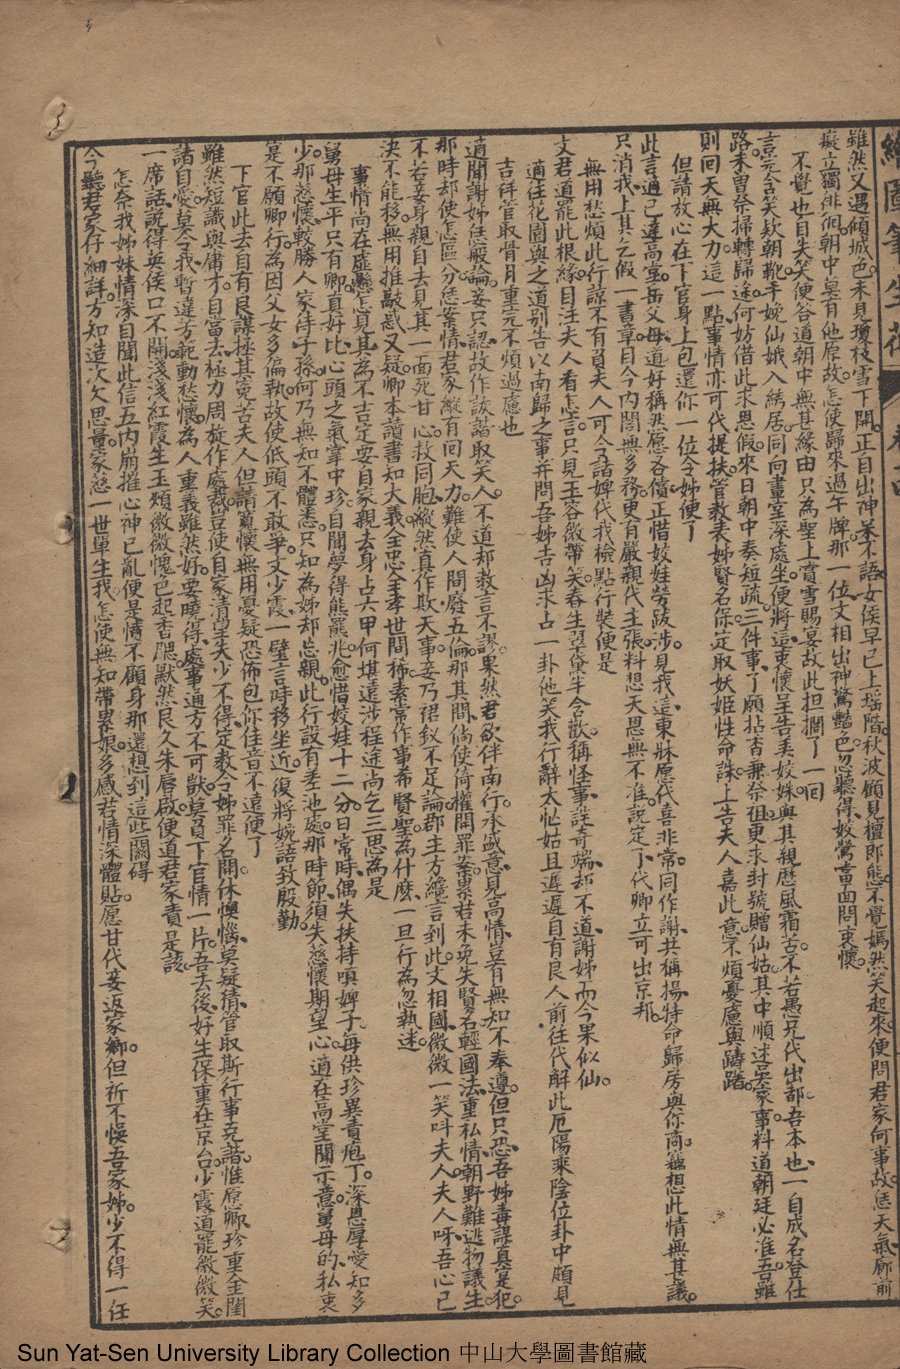 繪圖筆生花 卷十四
雖然又遇傾城色。未見瓊枝雪下開。正目出神茶不語。女侯早已上堦階。秋波顧見檀郎態。不覺嫣然笑起來。便問君家何事故。恁天氣廊前
癡立獨徘徊。朝中豈有他原故。怎便歸來過午牌。那一位文相出神驚豔色。忽聽得、姣鶯當面問衷懷。
不覺也自失笑。便答道朝中無甚緣由。只為聖上賞雪賜宴。故此担擱了一回
言完含笑欵朝靴。手挽仙娥入綉居。同向畫室深處坐。便將這衷懷呈告美姣姝。與其親歷風霜苦。不若愚兄代出都。吾本也、一自成名登仕
路。未曾奈掃轉歸途。何妨借此求恩假。來日朝中奏短疏。三件事、了願拈香兼祭祖。更求封號贈仙姑。其中順述吳家事。料道朝廷必准吾。雖
則回天無大力。這一點事情亦可代提扶。管教表姊賢名保。定取妖姬性命誅。上告夫人嘉此意。不煩憂慮與躊躇。
但請放心。在下官身上包還你一位令姊便了
此言適已達高堂。岳父母道好稱然愿各償。正惜姣娃勞跋涉。見我這東牀愿代喜非常。同作謝共稱揚。特命歸房與你商。藕想此情無甚議。
只消我、上其乞假一書章。目今內閣無多務。更有嚴親代主張。料想天恩無不准。說定了、代卿立可出京邦。
無用愁煩。此行諒不有負夫人。可令諸婢代我檢點行裝便是
文君道罷此根緣。目注夫人看怎言。只見玉容微帶笑。春生翠黛半含歡。稱怪事詫奇端。却不道、謝姊而今果似仙。
適在花園與之道別。告以南歸之事。并問吾姊吉凶。求占一卦。他笑我行辭太忙。姑且遲遲。自有良人前往代解此厄。陽乘陰位。卦中頗見
吉祥。管取骨肉重完。不煩過慮也
適聞謝姊恁般論。妾只認故作詼諧取笑人。不道却教言不謬。果然君欲伴南行。承盛意見高情。豈有無知不奉遵。但只恐、吾姊毒謀真是犯。
那時却使怎區分。恁案情君家縱有回天力。難使人間廢五倫。那其間、倘使倚權開罪案。累君未免失賢名。輕國法重私情。朝野難逃物議生。
不若妾身親自去。見其一面死甘心。救同胞、縱然真作欺天事。妾乃裙釵不足論。郡主方纔言到此。文相國、微微一笑呌夫人。夫人呀、吾心已
決不能移。無用推敲惑又疑。卿本讀書知大義。全忠全孝世間稀。素常作事希賢聖。為什麼、一旦行為忽執迷。
事情尚在虛懸。怎見其為不吉。定要自家親去。身占六甲。何堪遠涉程途。尚乞三思為是
舅母生平只有卿。真好比、心頭之氣掌中珍。自聞夢得熊羆兆。愈惜姣娃十二分。日常時、偶失扶持嗔婢子。每供珍異責庖丁。深恩厚愛知多
少。那慈懷、較勝人家待子孫。何乃無知不體悉。只知為姊却忘親。此行設有差池處。那時節、須失慈懷期望心。適在高堂聞示意。舅母的、私衷
是不願卿行。為因父女多偏執。故使低頭不敢爭。文少霞、一壁言時移坐近。復將婉語致殷勤。
下官此去。自有良謀拯其寃苦。夫人但請寬懷。無用憂疑恐怖。包你佳音不遠便了
雖然短識與庸才。自當去、極力周旋作處裁。豈使自家清望失。少不得、定教令姊罪名開。休懊惱莫疑猜。管取斯行事克諧。惟愿卿、珍重金閨
諸自愛。莫令我、暫違芳範動愁懷。為人重義雖然好。要曉得、處事通方不可獃。莫負下官情一片。吾去後、好生保重在京台。少霞道罷微微笑。
一席話、說得英侯口不開。淺淺紅霞生玉頰。微微愧色起香腮。默然良久朱唇啟。便道君家責是該。
怎奈我姊妹情深。自聞此信。五內崩摧。心神已亂。便是憤不顧身。那還想到這些關碍
今聽君家仔細詳。方知造次欠思量。家慈一世單生我。怎使無知帶累娘。多感君情深體貼。愿甘代妾返家鄉。但祈不悞吾家姊。少不得一任
Sun Yat-Sen University Library Collection 中山大學圖書館藏